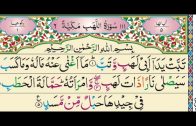 (۱۱۱) سُوْرَةُ اللَّهَبِ مَكِّيَّةٌ
بِسْمِ اللهِ الرَّحْمٰنِ الرَّحِيْمِ
تَبَّتْ يَدَآ اَبِيْ لَهَبٍ وَّتَبَّ مَآ اَغْنٰى عَنْهُ مَالُهٗ وَمَا كَسَبَ
سَيَصْلٰى نَارًا ذَاتَ لَهَبٍ وَّامْرَاَتُهٗ حَمَّالَةَ الْحَطَبِ
فِيْ جِيْدِهَا حَبْلٌ مِّنْ مَّسَدٍ